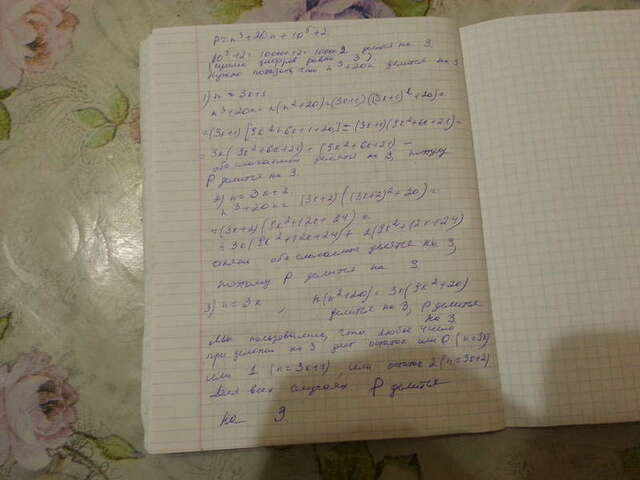 P = n³ + 20n + 10⁵ + 2
10⁵ + 2 = 100000 + 2 = 100002 делится на 3
(сумма цифров равна 3)
Нужно показать, что n³ + 20n делится на 3
1) n = 3k+1
n³ + 20n = n(n² + 20) = (3k+1)((3k+1)² + 20) =
= (3k+1)(9k² + 6k + 1 + 20) = (3k+1)(9k² + 6k + 21) =
= 3k(9k² + 6k + 21) + (9k² + 6k + 21) –
оба слагаемых делятся на 3, потому
P делится на 3.
2) n = 3k+2
n³ + 20n = (3k+2)((3k+2)² + 20) =
= (3k+2)(9k² + 12k + 24) =
= 3k(9k² + 12k + 24) + 2(9k² + 12k + 24)
опять оба слагаемых делятся на 3,
поэтому P делится на 3
3) n = 3k, n(n² + 20) = 3k(9k² + 20)
делится на 3, P делится
на 3.
Мы пользовались, что любое число
при делении на 3 дает остаток или 0 (n=3k)
или 1 (n=3k+1), или остаток 2 (n=3k+2)
Для всех случаях P делится
на 3